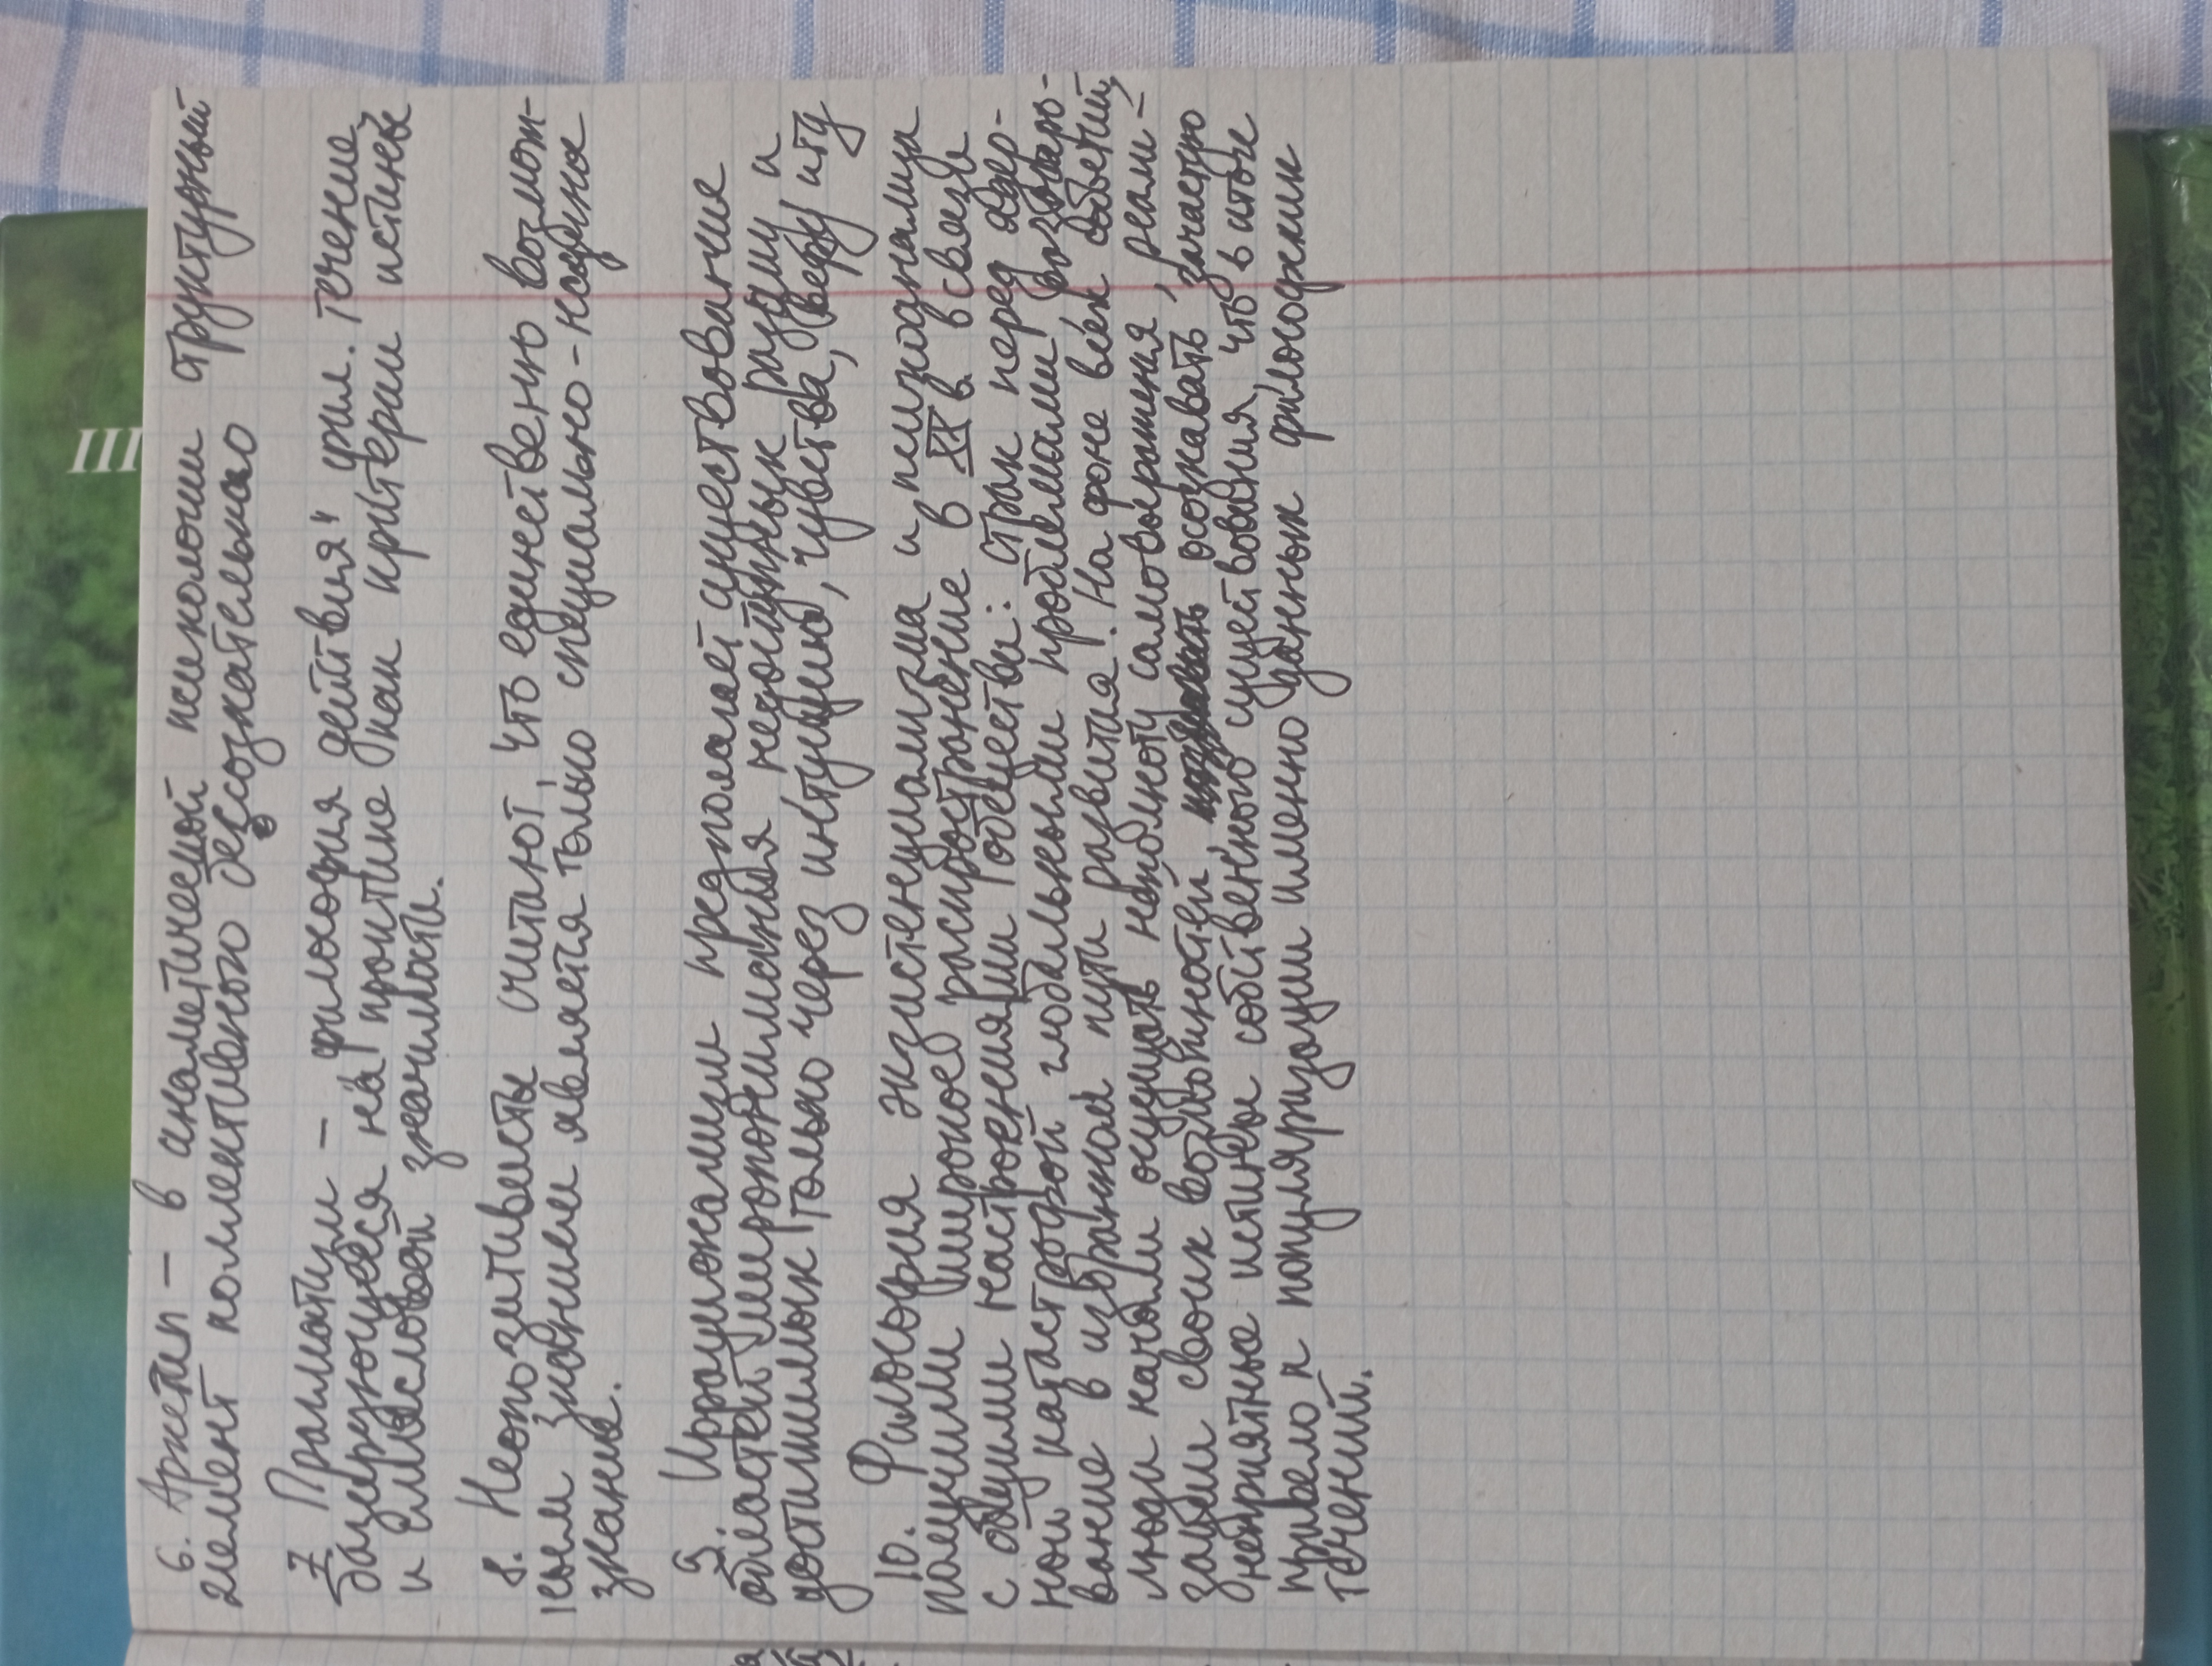 6. Архетип – в аналитической психологии структурный
элемент коллективного бессознательного
7 Прагматизм – „философия действия" фил. течение,
базирующееся на практике как критерии истины
и смысловой значимости.
8. Неопозитивисты считают, что единственно возмож-
ным знанием является только специально-научное
знание.
9. Иррационализм предполагает существование
областей миропонимания недоступных разуму и
достижимых только через интуицию, чувства, веру итд
10. Философия экзистенциализма и психоанализа
получили широкое распространение в XX в. в связи
с общими настроениями общества: страх перед ядер-
ной катастрофой глобальными проблемами, разочаро-
вание в избранном пути развития. На фоне всех событий,
люди начали ощущать неполноту самовыражения, реали-
зации своих возможностей, осознавать, зачастую
неприятные истины собственного существования, что в итоге
привело к популяризации именно данных философских
течений.
III